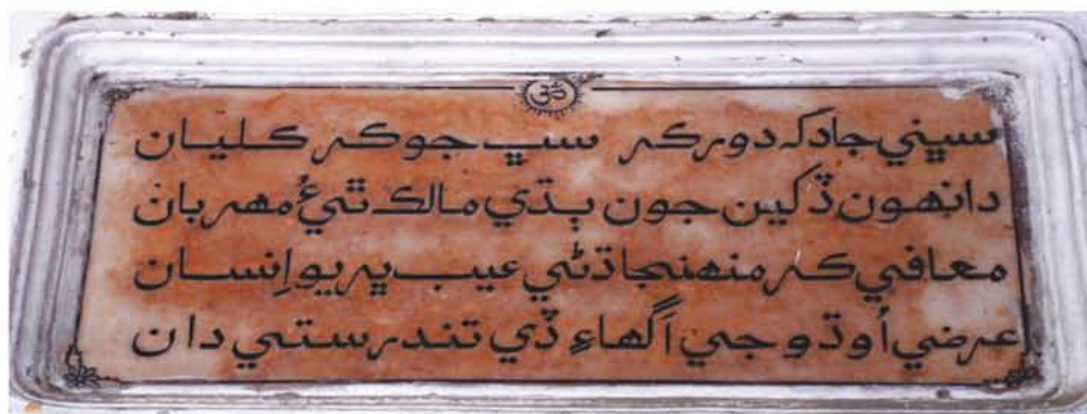 ॐ
سڀني جا دک دور ڪر سڀ جو ڪر ڪليان
دانهون ڏکين جون ٻڌي مالڪ ٿيءُ مھربان
معافي ڪر منھنجا ڌڻي عيب ڀريو اِنسان
عرضي اُوڌو جي اگھاءِ ڏي تندرستي دان